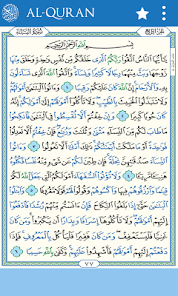 AL-QURAN
سورة النساء
الجزء الرابع
بسم الله الرحمن الرحيم
يَٰٓأَيُّهَا ٱلنَّاسُ ٱتَّقُوا۟ رَبَّكُمُ ٱلَّذِى خَلَقَكُم مِّن نَّفْسٍ وَٰحِدَةٍ وَخَلَقَ مِنْهَا
زَوْجَهَا وَبَثَّ مِنْهُمَا رِجَالًا كَثِيرًا وَنِسَآءً وَٱتَّقُوا۟ ٱللَّهَ ٱلَّذِى تَسَآءَلُونَ
بِهِۦ وَٱلْأَرْحَامَ إِنَّ ٱللَّهَ كَانَ عَلَيْكُمْ رَقِيبًا ١ وَءَاتُوا۟ ٱلْيَتَٰمَىٰٓ أَمْوَٰلَهُمْ
وَلَا تَتَبَدَّلُوا۟ ٱلْخَبِيثَ بِٱلطَّيِّبِ وَلَا تَأْكُلُوٓا۟ أَمْوَٰلَهُمْ إِلَىٰٓ أَمْوَٰلِكُمْ
إِنَّهُۥ كَانَ حُوبًا كَبِيرًا ٢ وَإِنْ خِفْتُمْ أَلَّا تُقْسِطُوا۟ فِى ٱلْيَتَٰمَىٰ فَٱنكِحُوا۟
مَا طَابَ لَكُم مِّنَ ٱلنِّسَآءِ مَثْنَىٰ وَثُلَٰثَ وَرُبَٰعَ فَإِنْ خِفْتُمْ أَلَّا تَعْدِلُوا۟
فَوَٰحِدَةً أَوْ مَا مَلَكَتْ أَيْمَٰنُكُمْ ذَٰلِكَ أَدْنَىٰٓ أَلَّا تَعُولُوا۟ ٣ وَءَاتُوا۟
ٱلنِّسَآءَ صَدُقَٰتِهِنَّ نِحْلَةً فَإِن طِبْنَ لَكُمْ عَن شَىْءٍ مِّنْهُ نَفْسًا
فَكُلُوهُ هَنِيٓـًٔا مَّرِيٓـًٔا ٤ وَلَا تُؤْتُوا۟ ٱلسُّفَهَآءَ أَمْوَٰلَكُمُ ٱلَّتِى جَعَلَ ٱللَّهُ لَكُمْ قِيَٰمًا
وَٱرْزُقُوهُمْ فِيهَا وَٱكْسُوهُمْ وَقُولُوا۟ لَهُمْ قَوْلًا مَّعْرُوفًا ٥ وَٱبْتَلُوا۟
ٱلْيَتَٰمَىٰ حَتَّىٰٓ إِذَا بَلَغُوا۟ ٱلنِّكَاحَ فَإِنْ ءَانَسْتُم مِّنْهُمْ رُشْدًا فَٱدْفَعُوٓا۟
إِلَيْهِمْ أَمْوَٰلَهُمْ وَلَا تَأْكُلُوهَآ إِسْرَافًا وَبِدَارًا أَن يَكْبَرُوا۟ وَمَن كَانَ
غَنِيًّا فَلْيَسْتَعْفِفْ وَمَن كَانَ فَقِيرًا فَلْيَأْكُلْ بِٱلْمَعْرُوفِ فَإِذَا دَفَعْتُمْ
إِلَيْهِمْ أَمْوَٰلَهُمْ فَأَشْهِدُوا۟ عَلَيْهِمْ وَكَفَىٰ بِٱللَّهِ حَسِيبًا ٦
٧٧